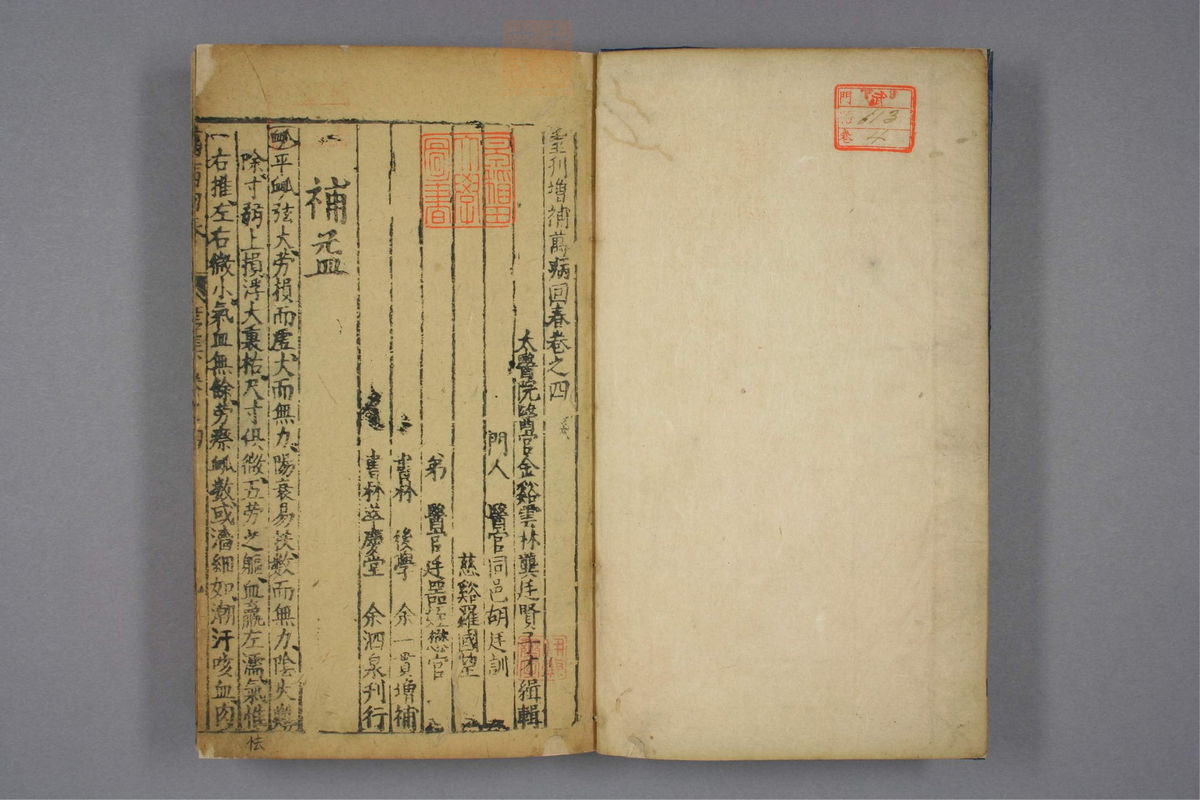 重刊增補萬病回春卷之四
太醫院醫官金谿雲林龔廷賢子才緝輯
門人 醫官同邑胡廷訓
慈谿羅國望
弟 醫官廷器 懋官
書林 後學 余一貫增補
書林萃慶堂 余泗泉刊行
補益
脉平脉弦大勞損而虛大而無力陽衰易扶數而無力陰失難
除寸弱上損浮大裏枯尺寸俱微五勞之軀血羸左濡氣怯
怯
右推左右微小氣血無餘勞瘵脉數或濇細如潮汗咳血肉
門 武
冊 613
卷